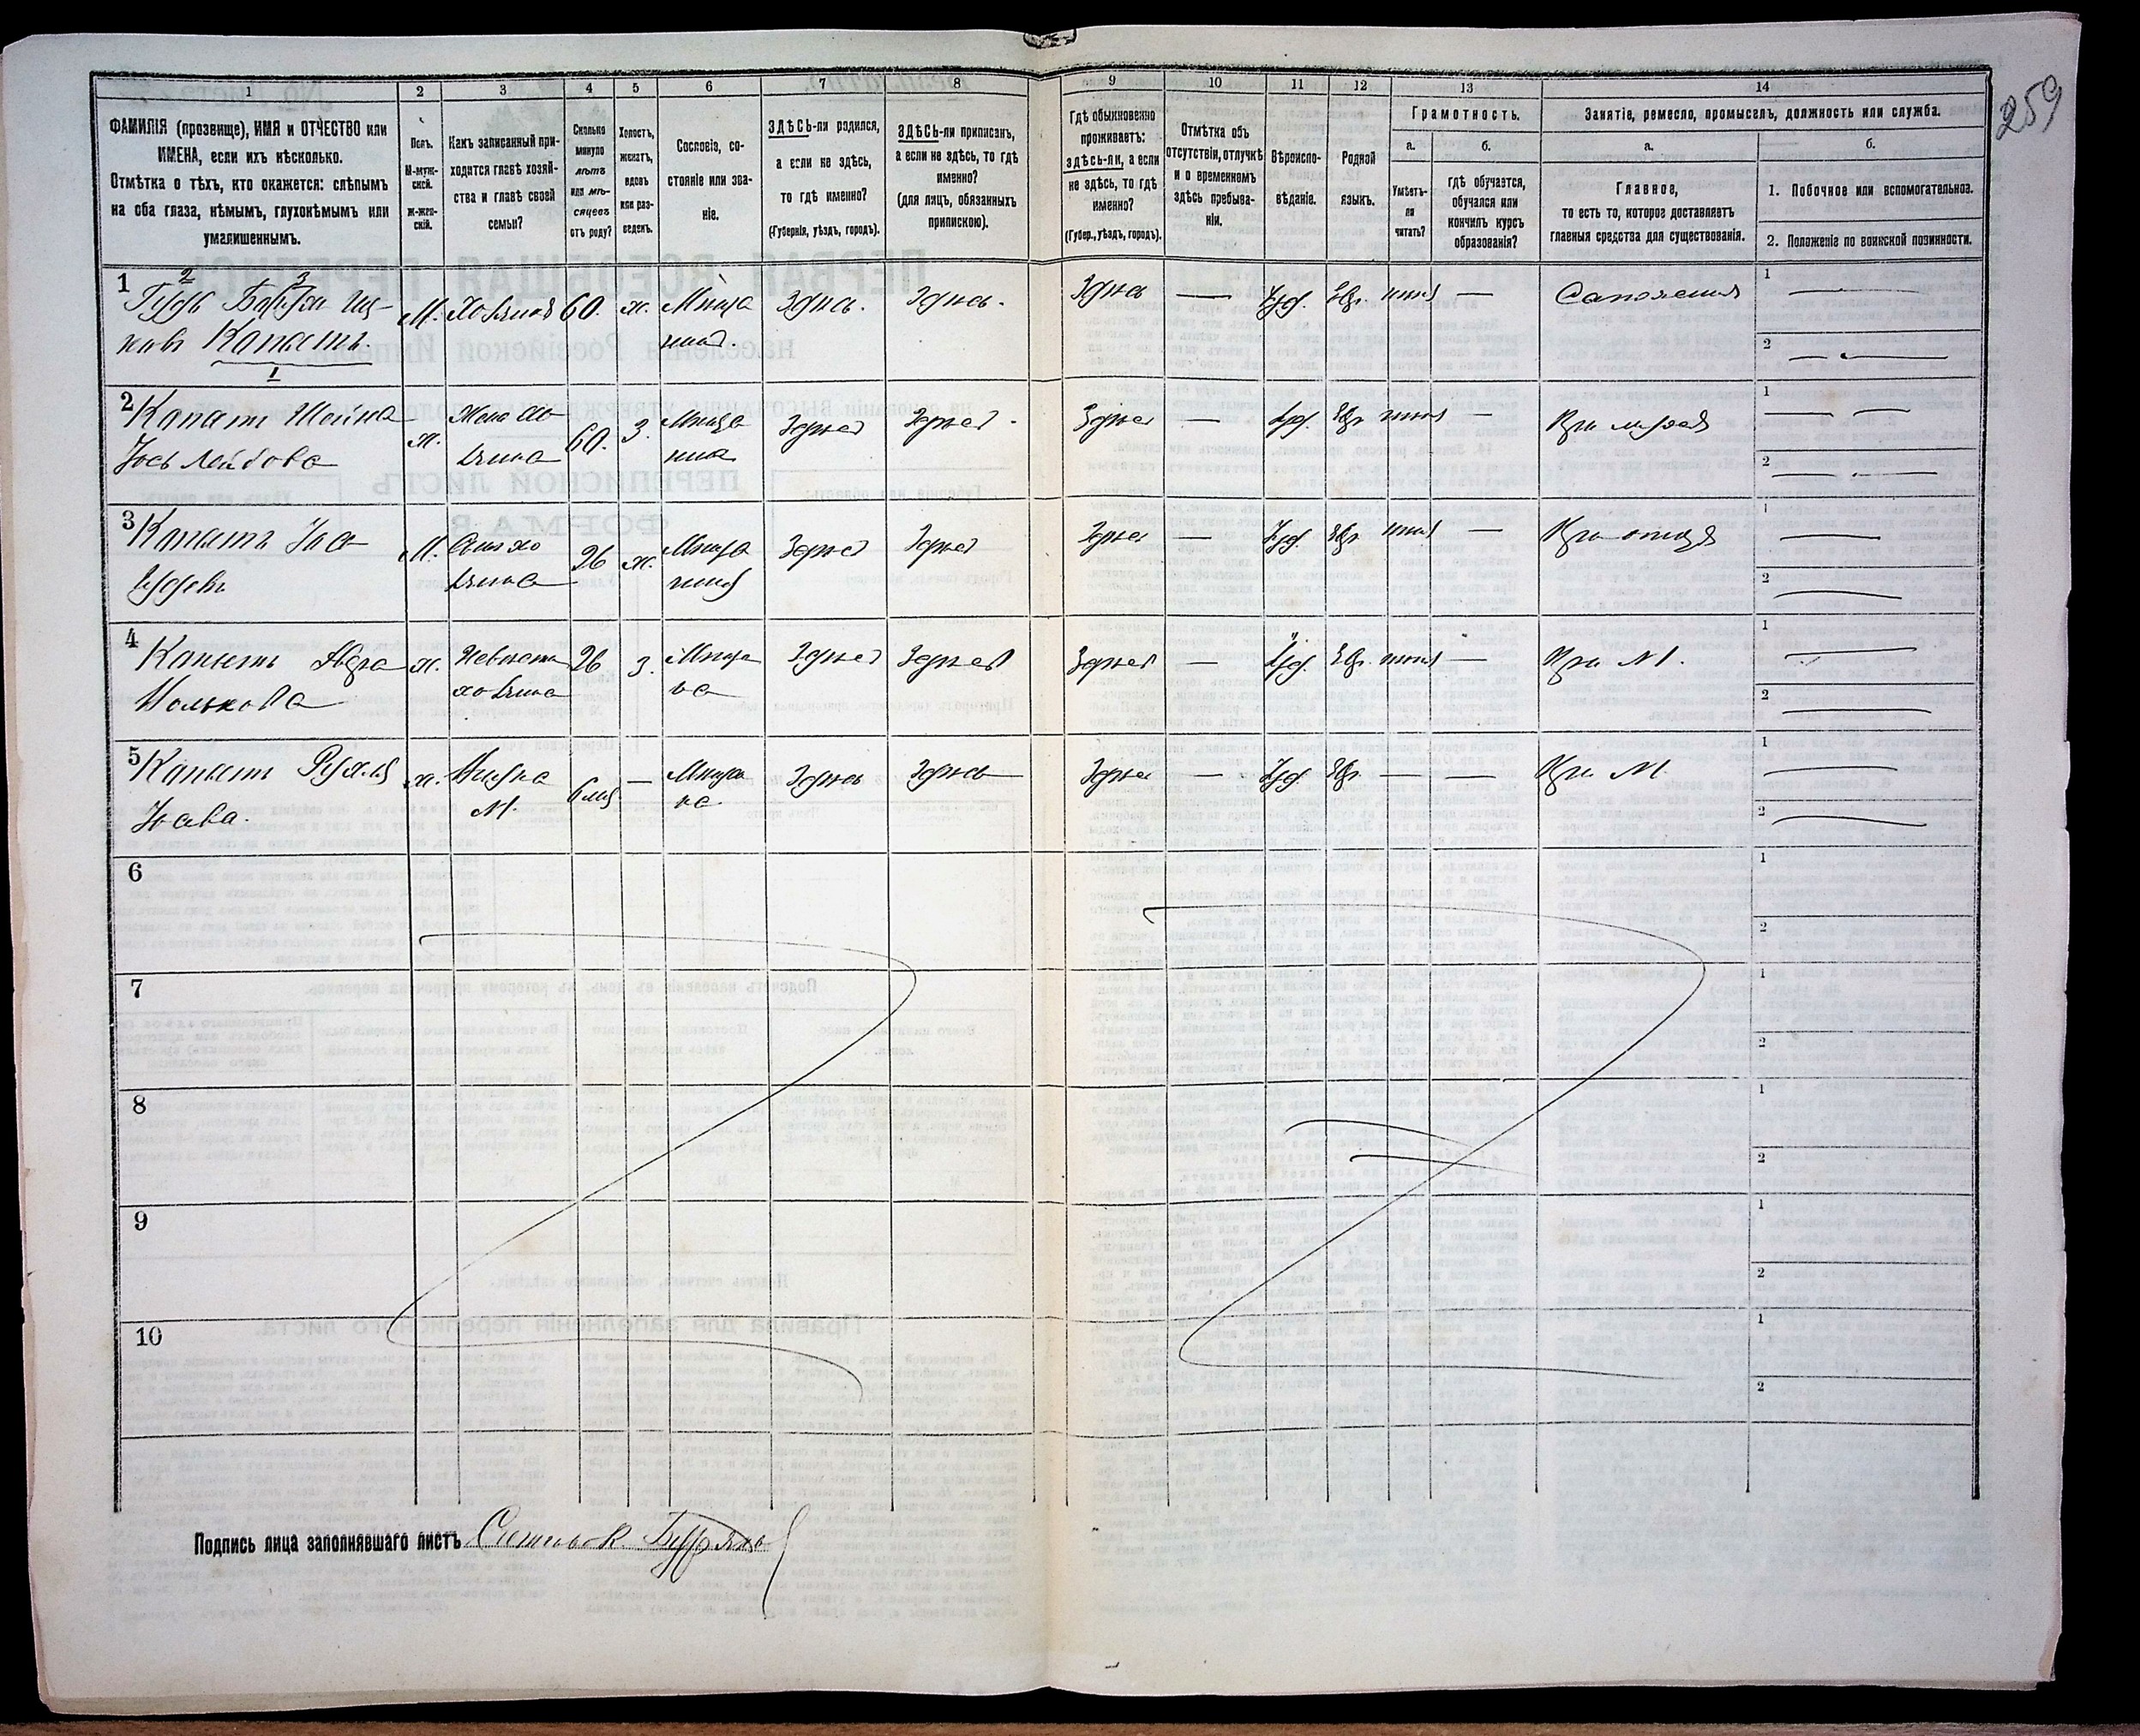 259
1 2 3 4 5 6 7 8 9 10 11 12 13 14
ФАМИЛІЯ (прозвище), ИМЯ и ОТЧЕСТВО или
ИМЕНА, если ихъ нѣсколько.
Отмѣтка о тѣхъ, кто окажется: слѣпымъ
на оба глаза, нѣмымъ, глухонѣмымъ или
умалишеннымъ.
Полъ.
М-муж-
ской.
ж-жен-
скій.
Какъ записанный при-
ходится главѣ хозяй-
ства и главѣ своей
семьи?
Сколько
минуло
лѣтъ
или мѣ-
сяцевъ
отъ роду?
Холостъ,
женатъ,
вдовъ
или раз-
веденъ.
Сословіе, со-
стояніе или зва-
ніе.
ЗДѢСЬ-ли родился,
а если не здѣсь,
то гдѣ именно?
(Губернія, уѣздъ, городъ).
ЗДѢСЬ-ли приписанъ,
а если не здѣсь, то гдѣ
именно?
(для лицъ, обязанныхъ
припискою).
Гдѣ обыкновенно
проживаетъ:
здѣсь-ли, а если
не здѣсь, то гдѣ
именно?
(Губер., уѣздъ, городъ).
Отмѣтка объ
отсутствіи, отлучкѣ
и о временномъ
здѣсь пребыва-
ніи.
Вѣроиспо-
вѣданіе.
Родной
языкъ.
Грамотность.
а.
Умѣетъ-
ли
читать?
б.
гдѣ обучается,
обучался или
кончилъ курсъ
образованія?
Занятіе, ремесло, промыселъ, должность или служба.
а.
Главное,
то есть то, которое доставляетъ
главныя средства для существованія.
б.
1. Побочное или вспомогательное.
2. Положеніе по воинской повинности.
1 2 3
М. 60. ж. Здѣсь. Здѣсь. Здѣсь — Іуд. Евр. — 1 —
Капытъ. 2 —
1
2 Капыт Шейна ж. Жена хо- 60. З. Мѣща Здѣсь Здѣсь. Здѣсь — Іуд. Евр — При мужѣ 1 —
Іось Лейбова зяина нка 2 —
3 Капытъ М. Сынъ хо 26 ж. Мѣща Здѣсь Здѣсь Здѣсь — Іуд. Евр — При отцѣ 1 —
зяина нинъ 2 —
4 Капытъ ж. Невѣстка 26 З. Мѣща Здѣсь Здѣсь Здѣсь — Іуд. Евр. — При М. 1 —
хозяина 2 —
5 Капытъ Рухля ж. Внучка 6 мѣс — Мѣща Здѣсь Здѣсь Здѣсь — Іуд. Евр. — — При М. 1 —
М. нка 2 —
6 1
2
7 1
2
8 1
2
9 1
2
10 1
2
Подпись лица заполнявшаго листъ